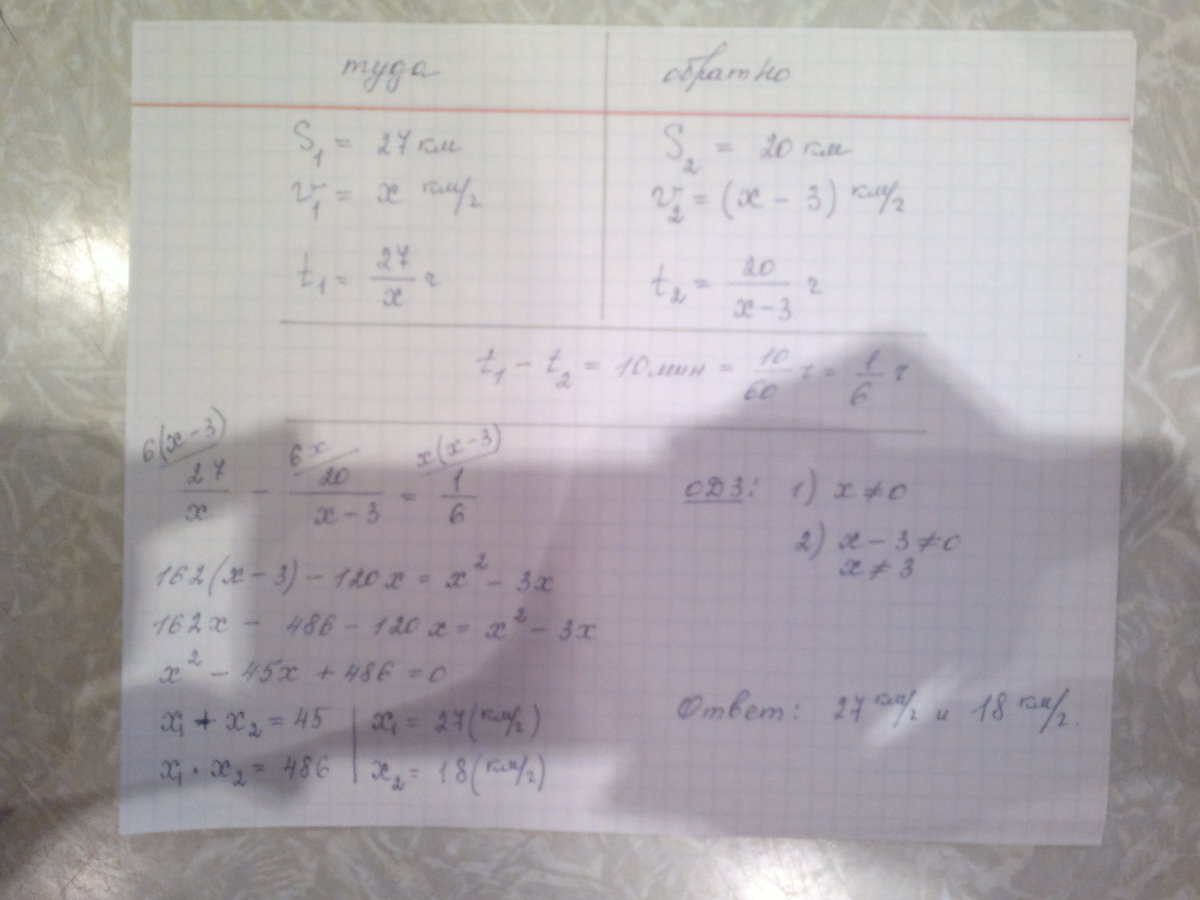 туда обратно
S₁ = 27 км S₂ = 20 км
v₁ = x км/ч v₂ = (x – 3) км/ч
t₁ = 27/x ч t₂ = 20/(x – 3) ч
t₁ – t₂ = 10 мин = 10/60 ч = 1/6 ч
6(x – 3) 6x x(x – 3)
27/x – 20/(x – 3) = 1/6 ОДЗ: 1) x ≠ 0
2) x – 3 ≠ 0
x ≠ 3
162(x – 3) – 120x = x² – 3x
162x – 486 – 120x = x² – 3x
x² – 45x + 486 = 0
x₁ + x₂ = 45 | x₁ = 27 (км/ч)
x₁ · x₂ = 486 | x₂ = 18 (км/ч)
Ответ: 27 км/ч и 18 км/ч.